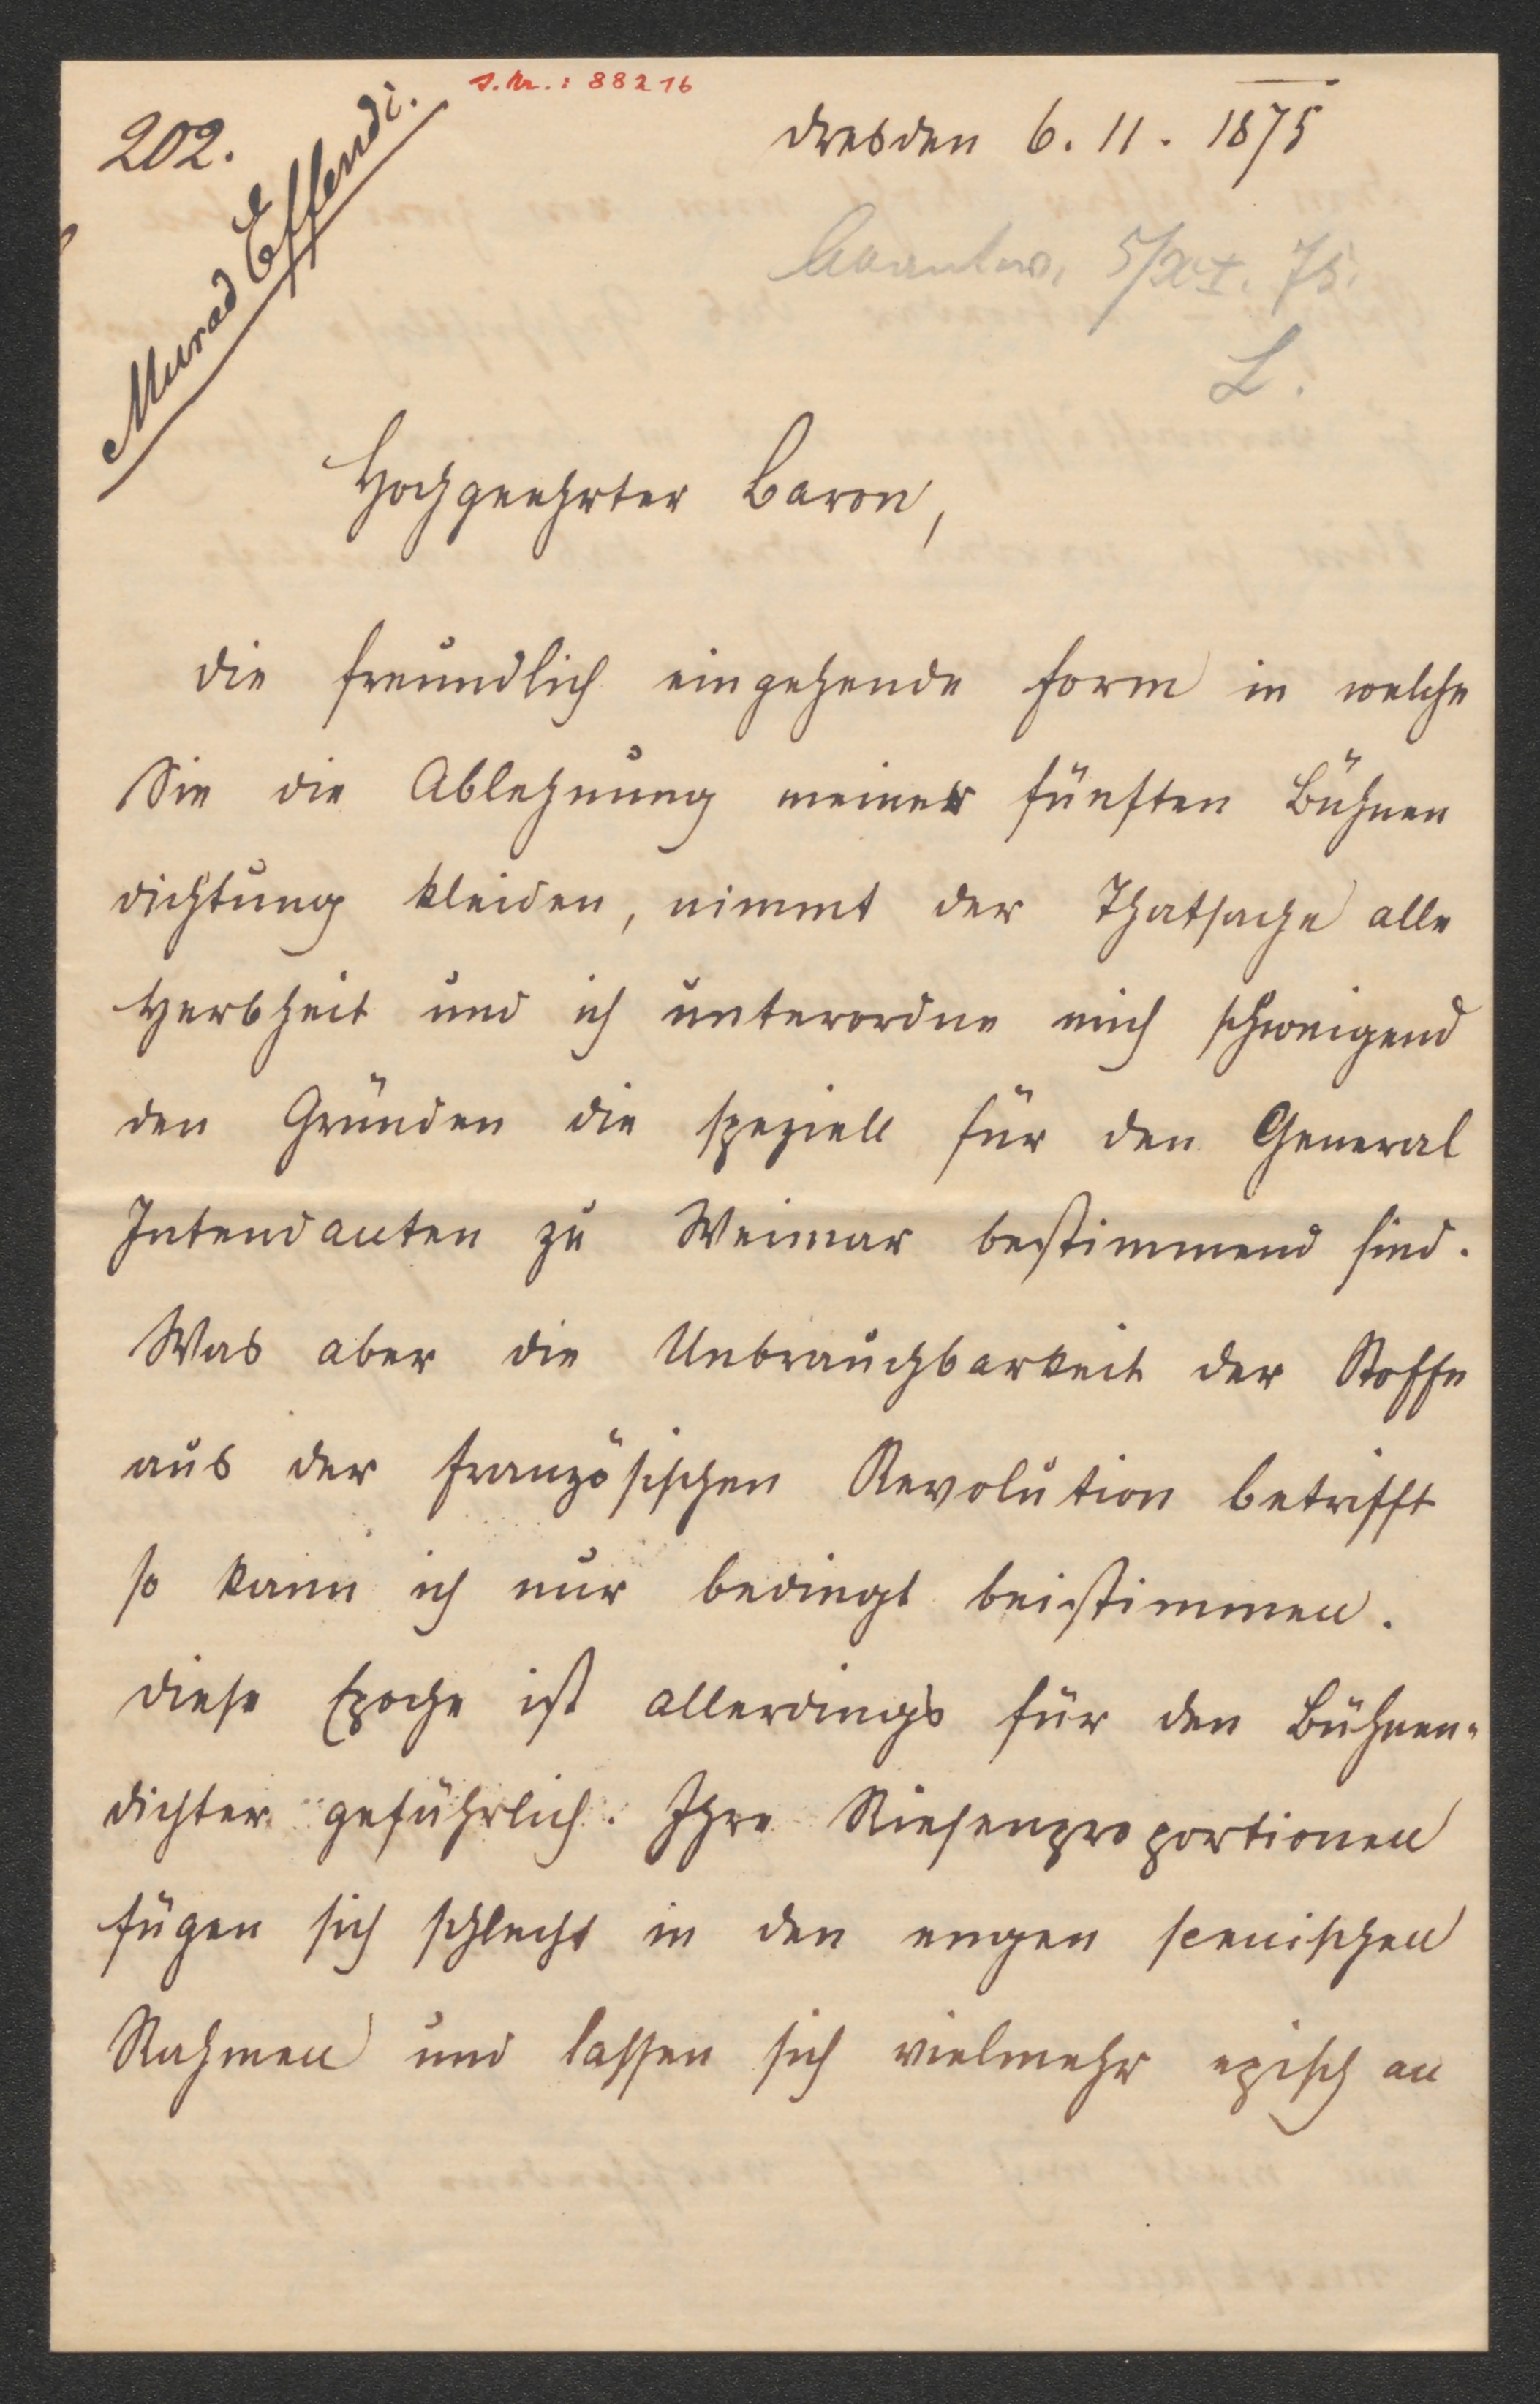 J. Nr.: 88216
202.
Murad Effendi.
Dresden 6. 11. 1875
5/XI. 75.
L.
Hochgeehrter Baron,
die freundlich eingehende Form in welche
Sie die Ablehnung meiner fünften Bühnen
dichtung kleiden, nimmt der Thatsache alle
Herbheit und ich unterordne mich schweigend
den Gründen die speziell für den General
Intendanten zu Weimar bestimmend sind.
Was aber die Unbrauchbarkeit der Stoffe
aus der französischen Revolution betrifft
so kann ich nur bedingt beistimmen.
Diese Epoche ist allerdings für den Bühnen-
dichter gefährlich. Ihre Riesenproportionen
fügen sich schlecht in den engen scenischen
Rahmen und lassen sich vielmehr episch an